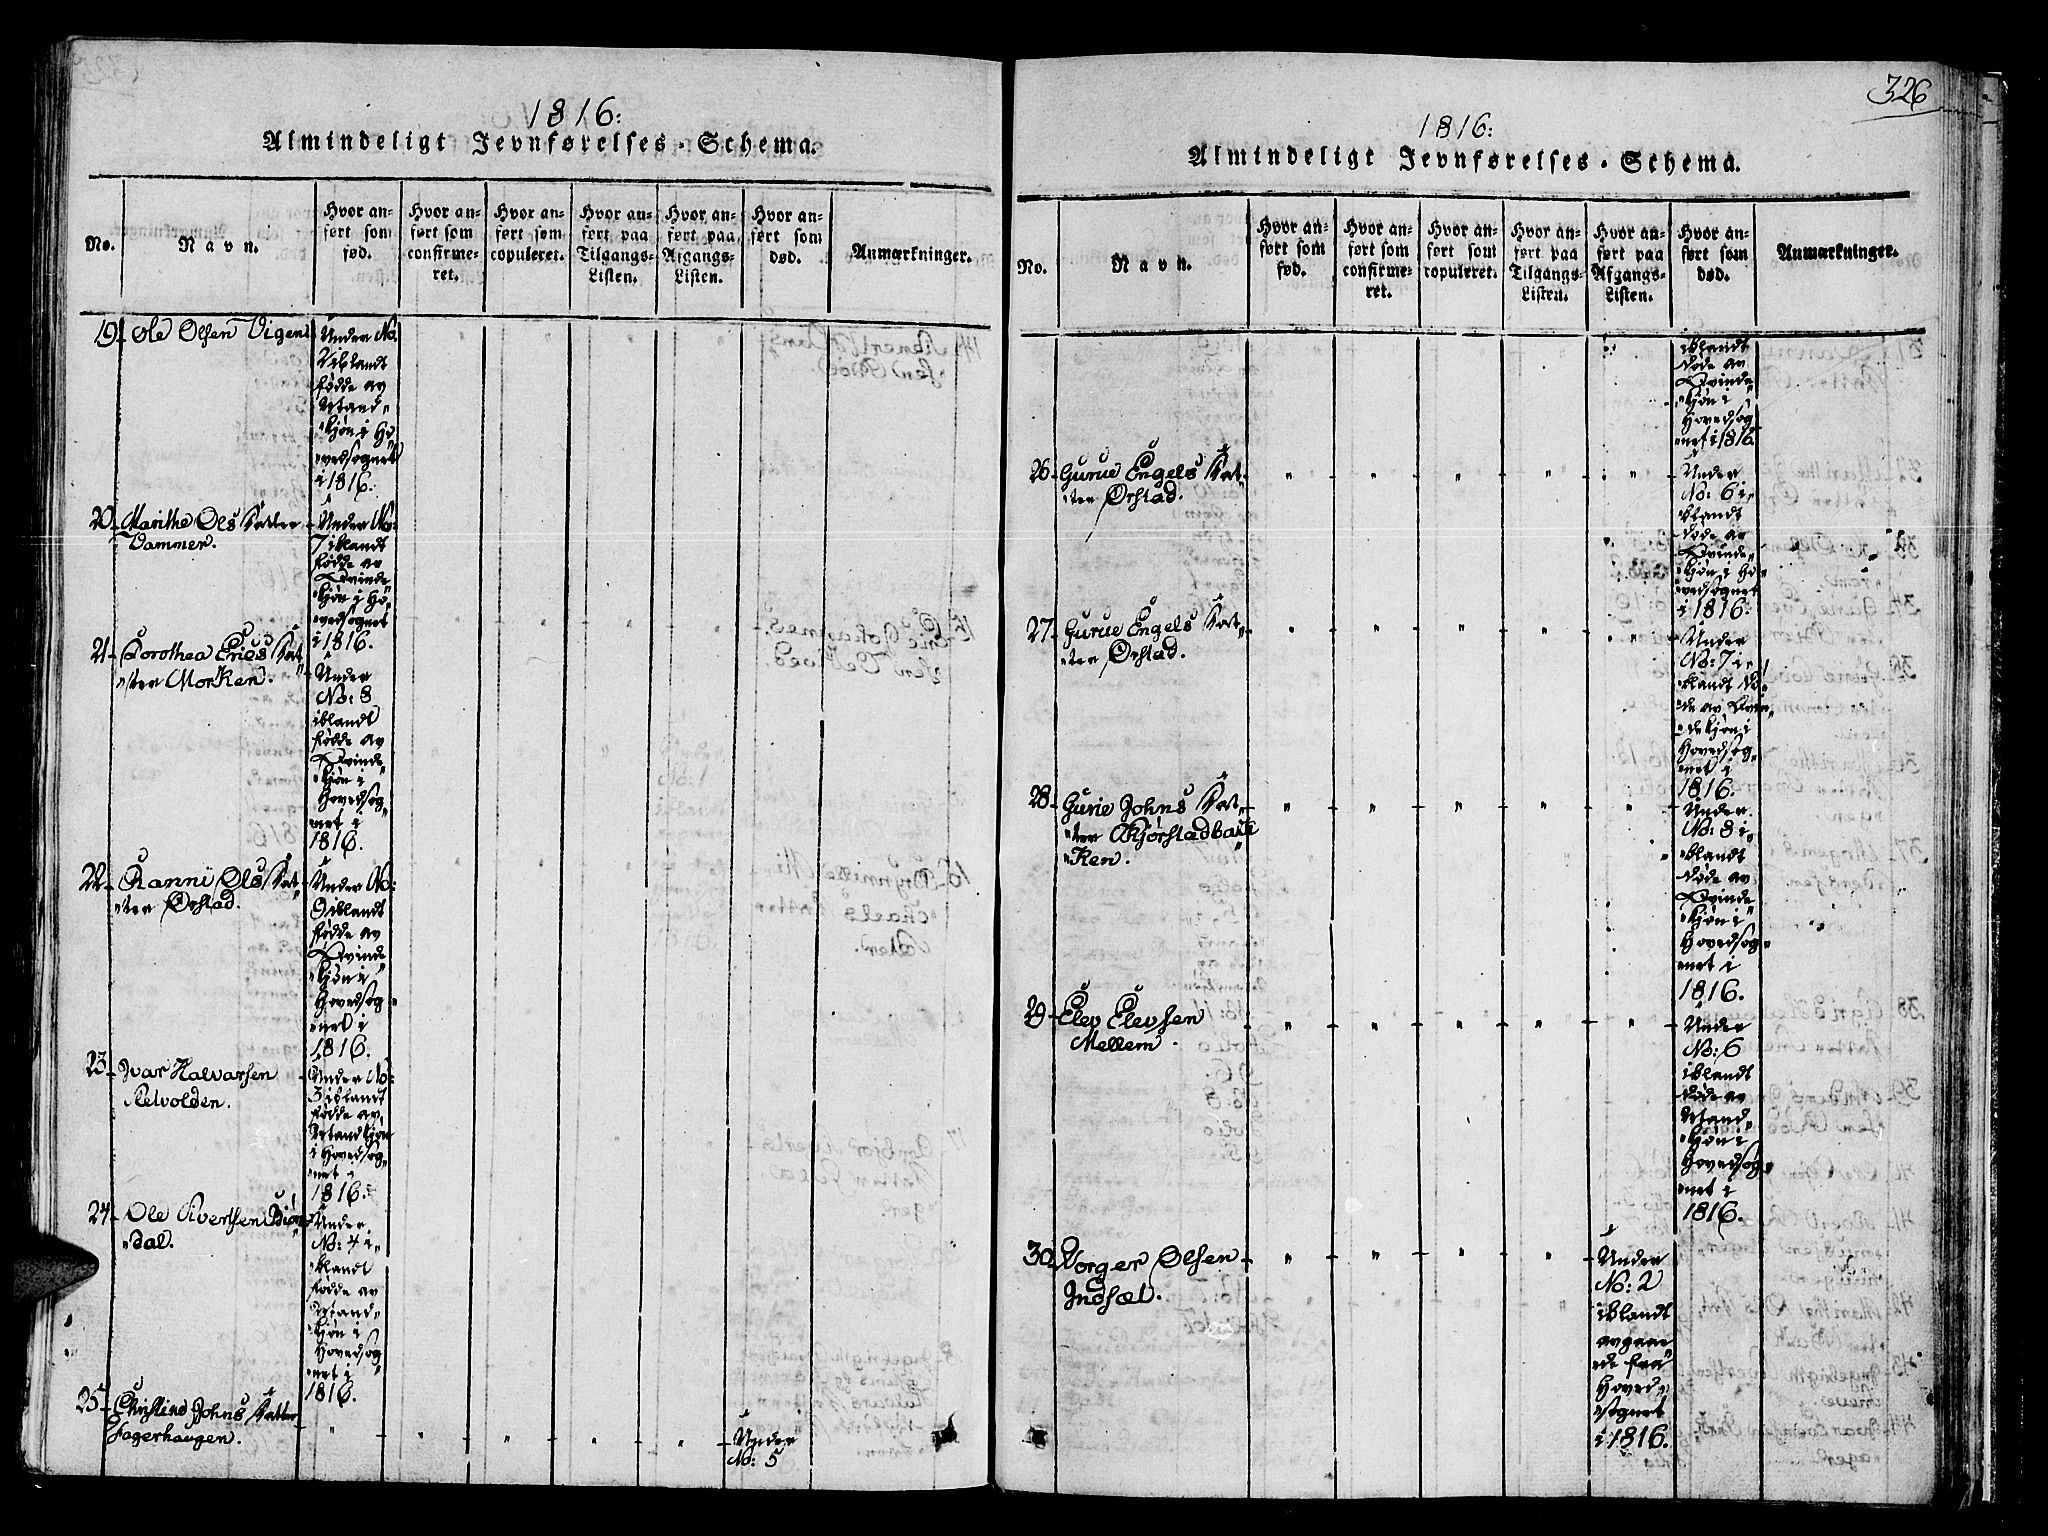 1816:
Almindeligt Jevnførelses-Schema.
No.
Navn.
Hvor an-
ført som
fød.
Hvor an-
ført som
confirme-
ret.
Hvor an-
ført som
copuleret.
Hvor an-
ført paa
Tilgangs-
Listen.
Hvor an-
ført paa
Afgangs-
Listen.
Hvor an-
ført som
død.
Anmærkninger.
19 Ole Olsen Vigen
Under No.
2 iblandt
fødde av
Mand„
„kjøn i Ho„
„vedsognet
i 1816.
20 Marithe Ols Datter
Vammer.
Under No:
7 iblandt
fødde av
Qvinde„
„kjøn i Ho„
„vedsognet
i 1816.
21 Dorothea Erics Dat„
„ter Morken.
Under
No: 8
iblandt
fødde av
Qvinde„
„kjøn i
Hovedsog„
„net i
1816.
22 Ranni Ols Dat„
„ter Ørstad.
Under No:
9 iblandt
fødde av
Qvinde„
„kjøn i
Hovedsog„
„net i
1816.
23 Ivar Halvarsen
Selvolden.
Under No:
3 iblandt
fødde av
Mandkjøn
i Hovedsog„
„net i
1816.
24 Ole Sivertsen
„dal.
Under
No: 4 i„
„blandt
fødde av
Mand„
„kjøn i
Hovedsog„
„net i
1816.
25 Christine Johns Datter
Hagerhaugen.
Under
No: 5
326
1816:
Almindeligt Jevnførelses-Schema.
No.
Navn.
Hvor an-
ført som
fød.
Hvor an-
ført som
confirme-
ret.
Hvor an-
ført som
copuleret.
Hvor an-
ført paa
Tilgangs-
Listen.
Hvor an-
ført paa
Afgangs-
Listen.
Hvor an-
ført som
død.
Anmærkninger.
iblandt
døde av
Qvinde„
„kjøn i
Hovedsog„
„net i 1816.
26 Gurue Engels Dat„
„ter Ørstad.
Under
No: 6 i„
„blandt
døde av
Qvinde„
„kjøn i Ho„
„vedsognet
i 1816.
27 Gurue Engels Dat„
„ter Ørstad.
Under
No: 7 i„
„blandt dø„
„de av Qvin„
„dekjøn i
Hovedsog„
„net i
1816.
28 Gurie Johns Dat„
„ter Skjørstadbak„
„ken.
Under
No: 8 i„
„blandt
døde av
Qvinde„
„kjøn i
Hovedsog„
„net i
1816.
29 Elev Elevsen
Mellem.
Under
No: 6
iblandt
døde av
Mand„
„kjøn i
Hovedsog„
„net i
1816.
30 Torger Olsen
Indset.
Under
No: 2
iblandt
avgaae„
„de fra
Hoved„
„sognet
i 1816.